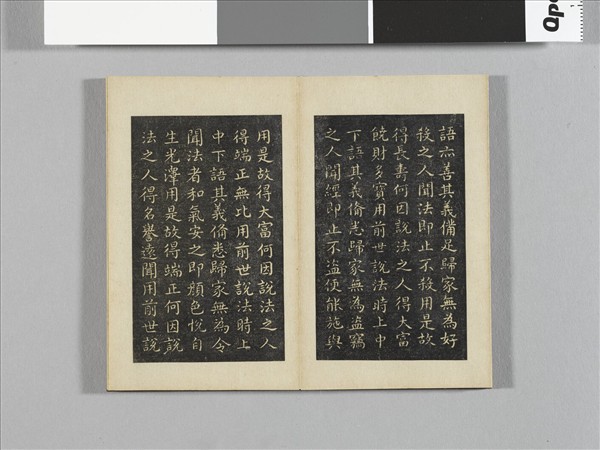 語亦善其義備足歸家無為好
殺之人聞法即止不殺用是故
得長壽何因說法之人得大富
饒財多寶用前世說法時上中
下語其義備悉歸家無為盜竊
之人聞經即止不盜便能施與
用是故得大富何因說法之人
得端正無比用前世說法時上
中下語其義備悉歸家無為令
聞法者和氣安之即顏色悅自
生光澤用是故得端正何因說
法之人得名譽遠聞用前世說